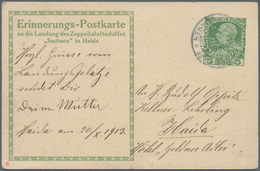 Erinnerungs-Postkarte
an die Landung des Zeppelinluftschiffes
„Sachsen" in Haida
Herzl. Grüsse vom
Landungsplatze
sendet Dir
Deine Mutter
Haida am 20/X 1913
5
An H. Rudolf Oppitz
Kellner Lehrling
Haida
Hotel „goldner Adler"